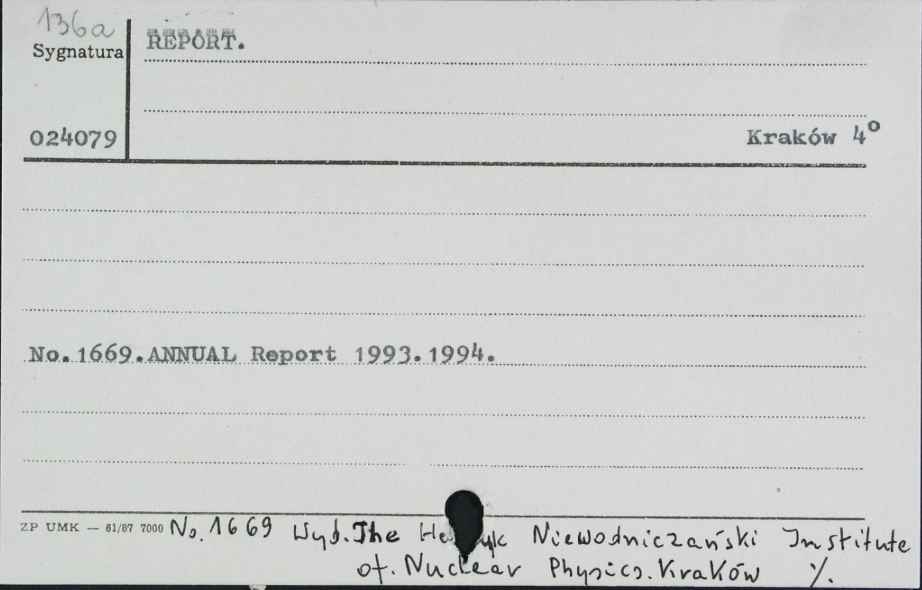 136a
Sygnatura
REPORT.
024079
Kraków 4º
No.1669.ANNUAL Report 1993.1994.
ZP UMK — 61/87 7000 No. 1669 Wyd. The Niewodniczański Institute
of. Nuclear Physics. Kraków %.